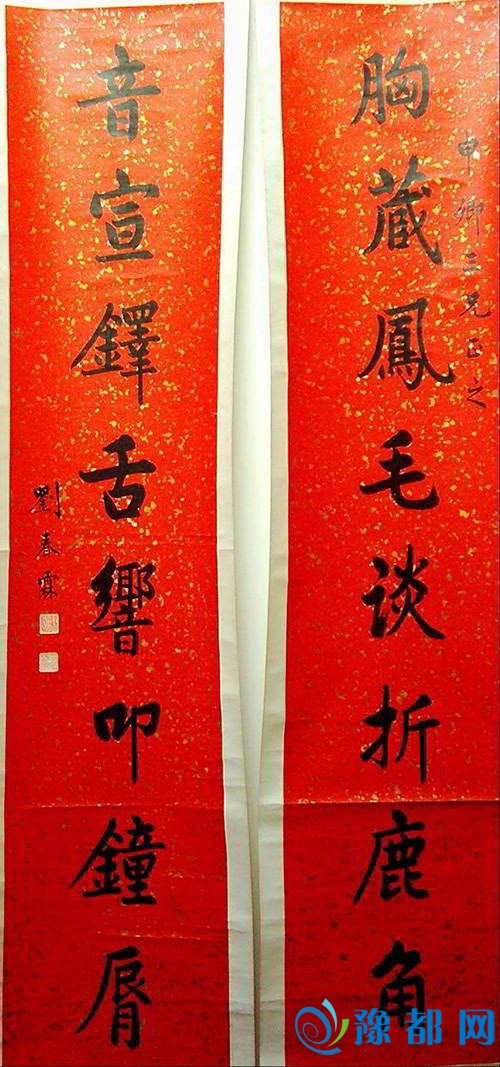 申卿三兄正之
胸蔵鳳毛谈折鹿角
音宣鐸舌響叩鐘脣
劉春霖
豫都网